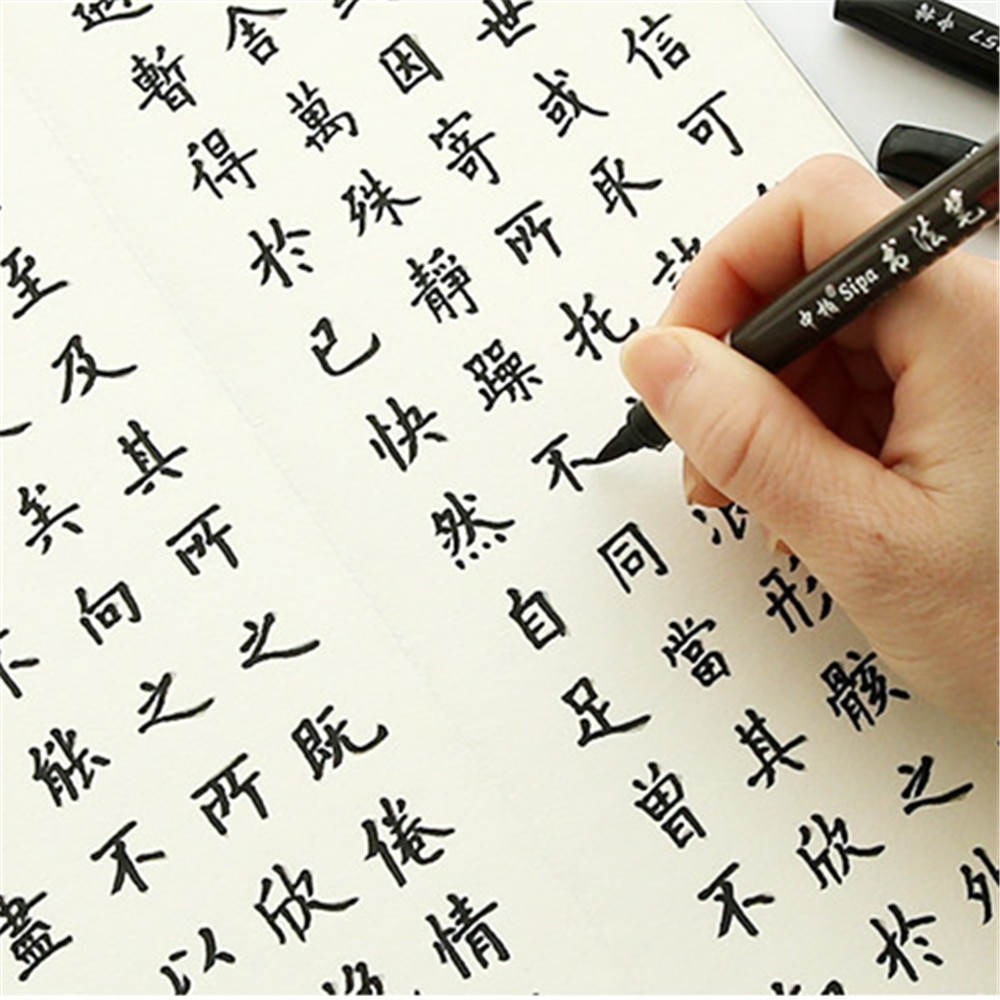 信可
世或取諸
因寄所托浪形骸之外
舍萬殊靜躁不同當其欣於
遇暫得於已快然自足曾不
至及其所之既倦情
矣向之所欣
不能不以
盡
中柏®Sipa 书法笔
57 中柏